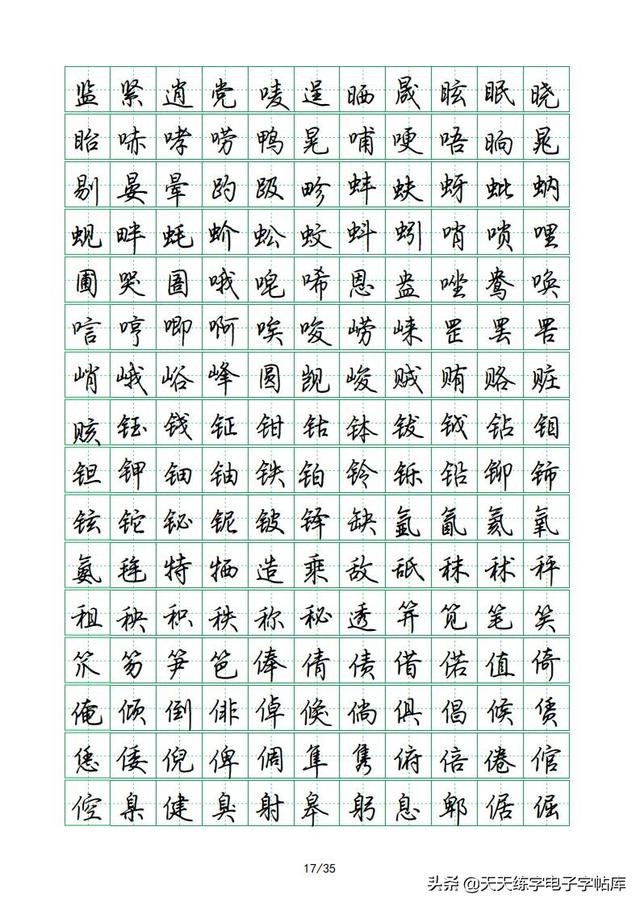 监紧逍党唛逞晒晟眩眠晓
眙哧哮唠鸭晃哺哽唔晌晁
剔晏晕趵趿畛蚌蚨蚜蚍蚋
蚬畔蚝蚧蚣蚊蚪蚓哨唢哩
圃哭圄哦唣唏恩盎唑鸯唤
唁哼唧啊唉唆崂崃罡罢罟
峭峨峪峰圆觊峻贼贿赂赃
赅钰钱钲钳钴钵钹钺钻钼
钽钾钿铀铁铂铃铄铅铆铈
铉铊铋铌铍铎缺氩氤氦氧
氨毪特牺造乘敌舐秣秫秤
租秧积秩称秘透笄笕笔笑
笊笏笋笆俸倩债借偌值倚
俺倾倒俳倬倏倘俱倡候赁
恁倭倪俾倜隼隽俯倍倦倌
倥臬健臭射皋躬息郫倨倔
17/35
头条 @天天练字电子字帖库